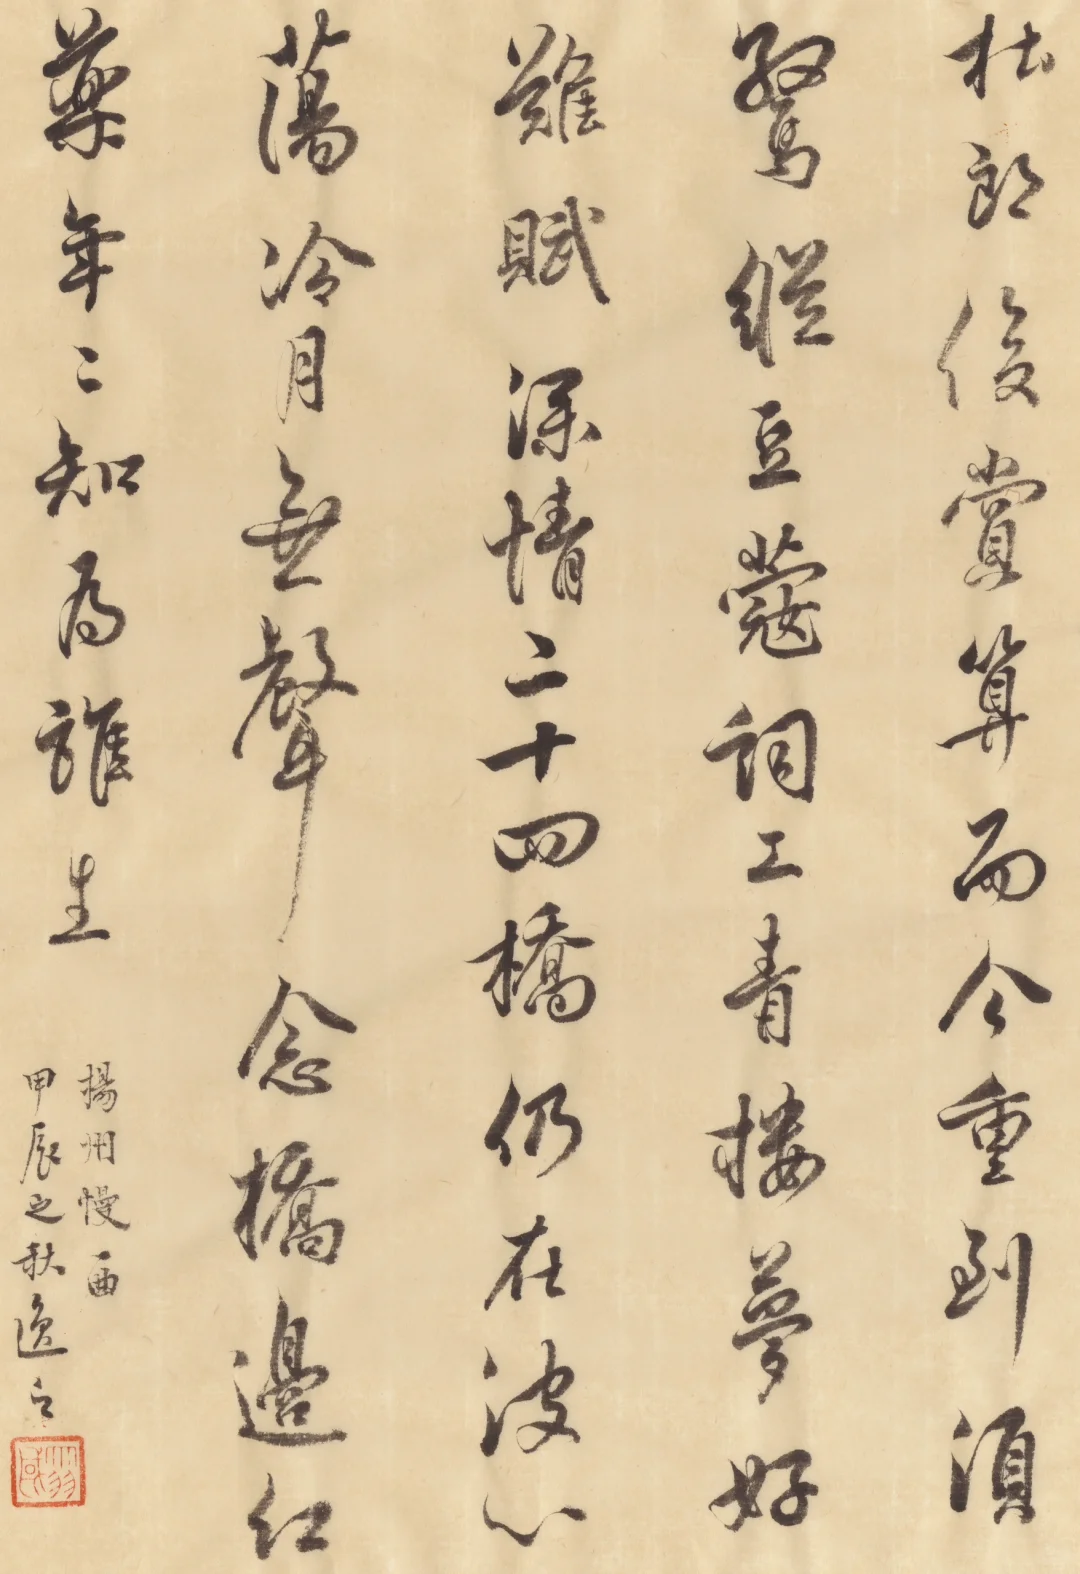 杜郎俊賞算而今重到須
驚縱豆蔻詞工青樓夢好
難賦深情二十四橋仍在波心
蕩冷月無聲念橋邊紅
藥年〻知為誰生
揚州慢
甲辰之秋逸之